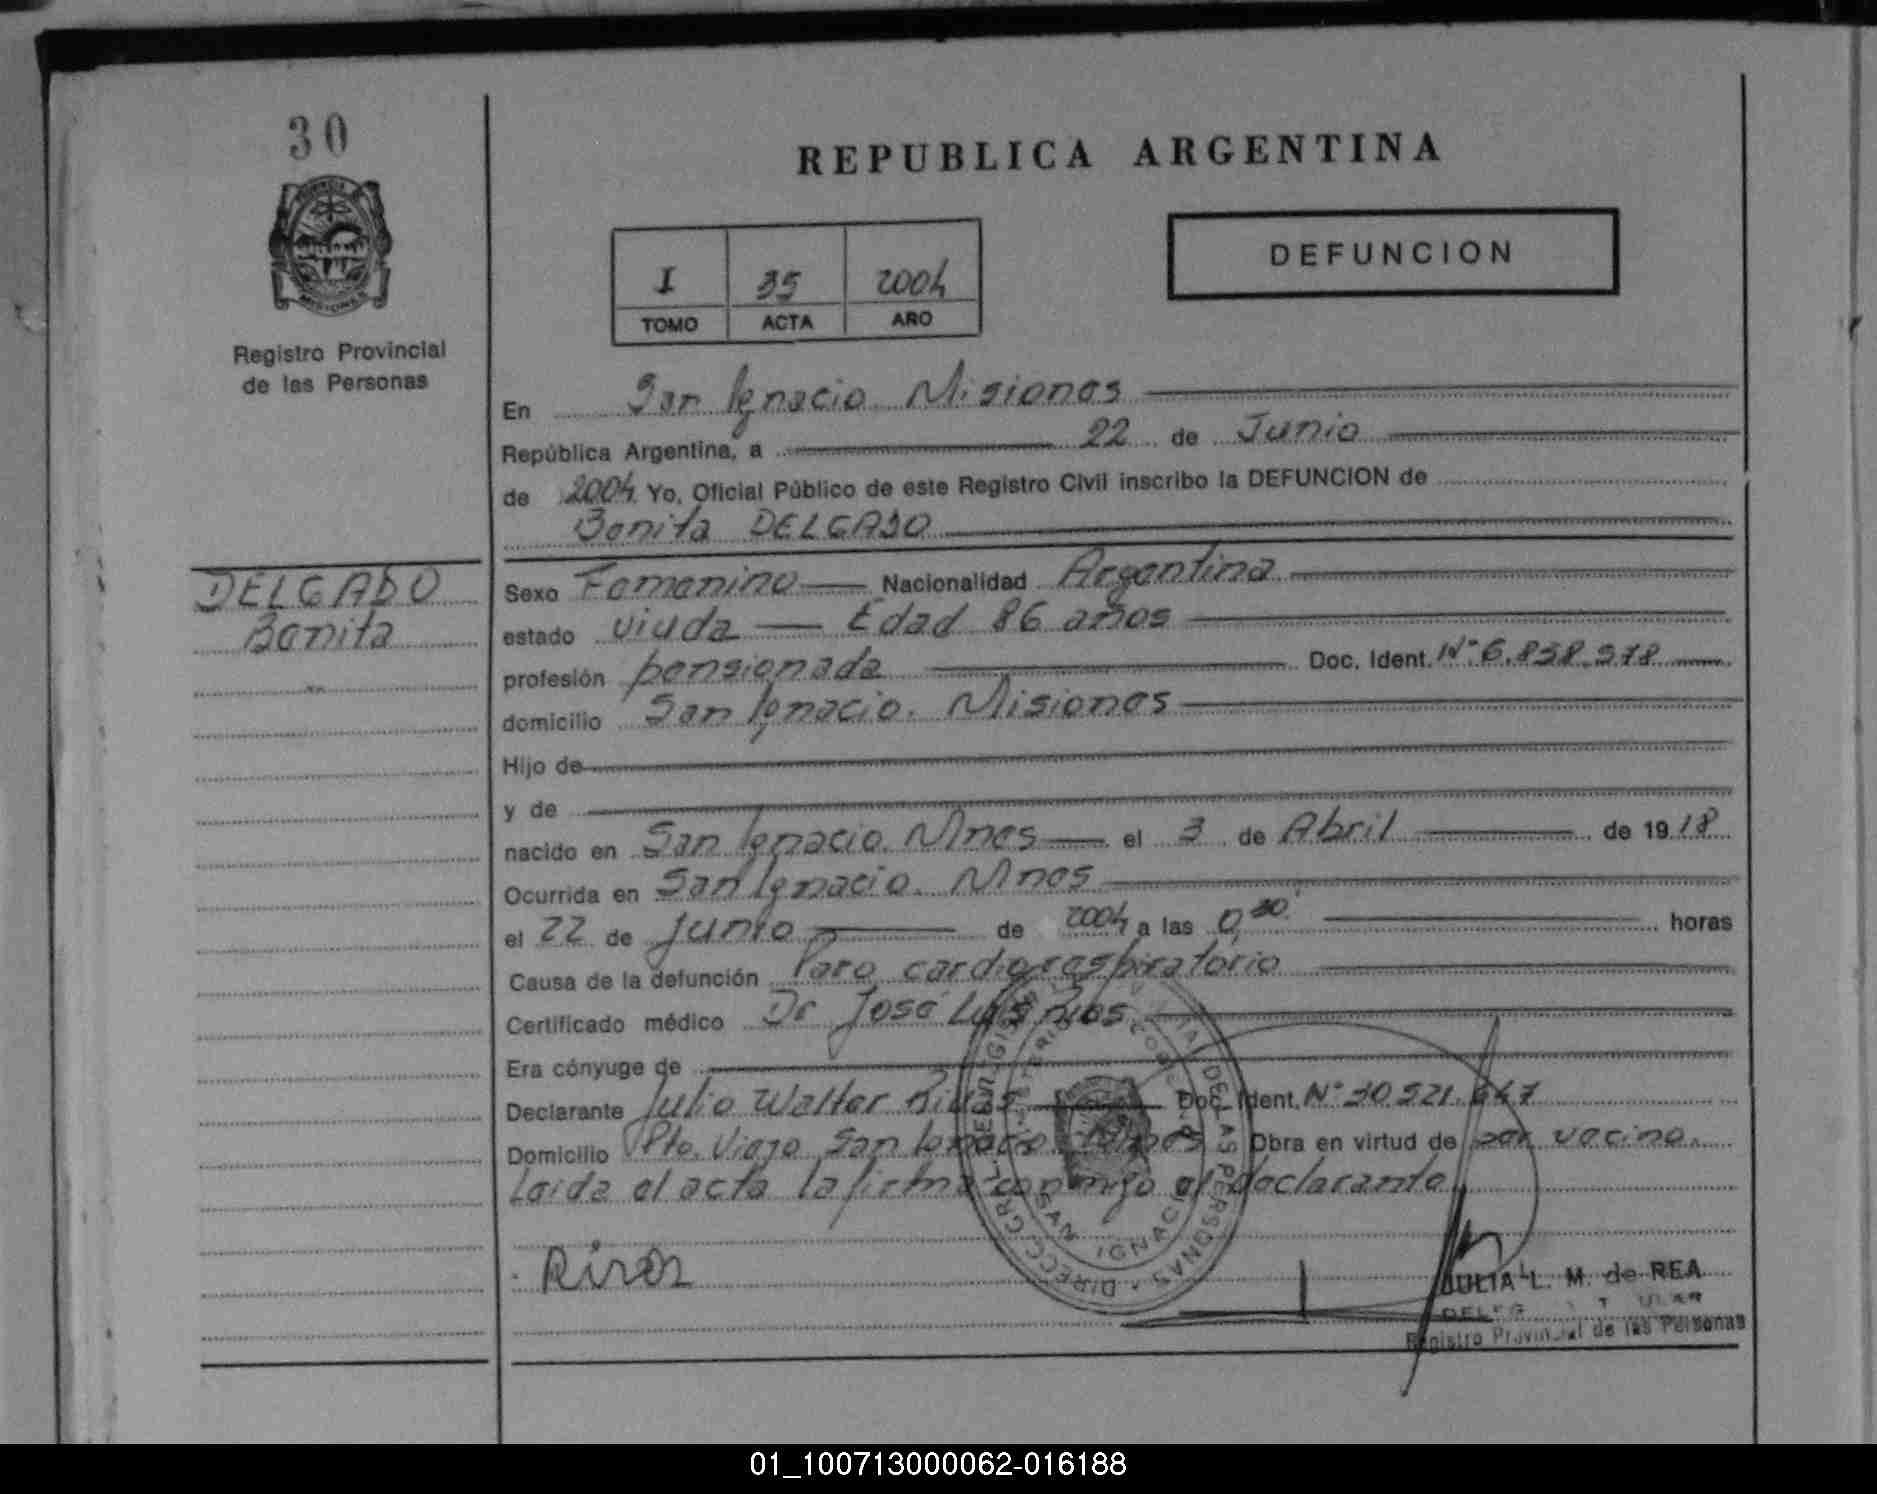 30
REPUBLICA ARGENTINA
DEFUNCION
I 35 2004
TOMO ACTA AÑO
Registro Provincial
de las Personas
En San Ignacio Misiones
República Argentina, a 22 de Junio
de 2004 Yo, Oficial Público de este Registro Civil inscribo la DEFUNCION de
Benita DELGADO
DELGADO
Benita
Sexo Femenino Nacionalidad Argentina
estado viuda Edad 86 años
profesión pensionada Doc. Ident. Nº 6.838.978
domicilio San Ignacio. Misiones
Hijo de
y de
nacido en San Ignacio Mnes el 3 de Abril de 1918
Ocurrida en San Ignacio. Mnes
el 22 de Junio de 2004 a las 0,30 horas
Causa de la defunción Paro cardiorespiratorio
Certificado médico Dr José Luis
Era cónyuge de
Declarante Julio Walter Doc. Ident. Nº
Domicilio Pto. Viejo San Ignacio Mnes Obra en virtud de ser vecino.
Leida el acta la firma conmigo el declarante
JULIA L. M. de REA
Registro Provincial de las Personas
SAN IGNACIO
01_100713000062-016188